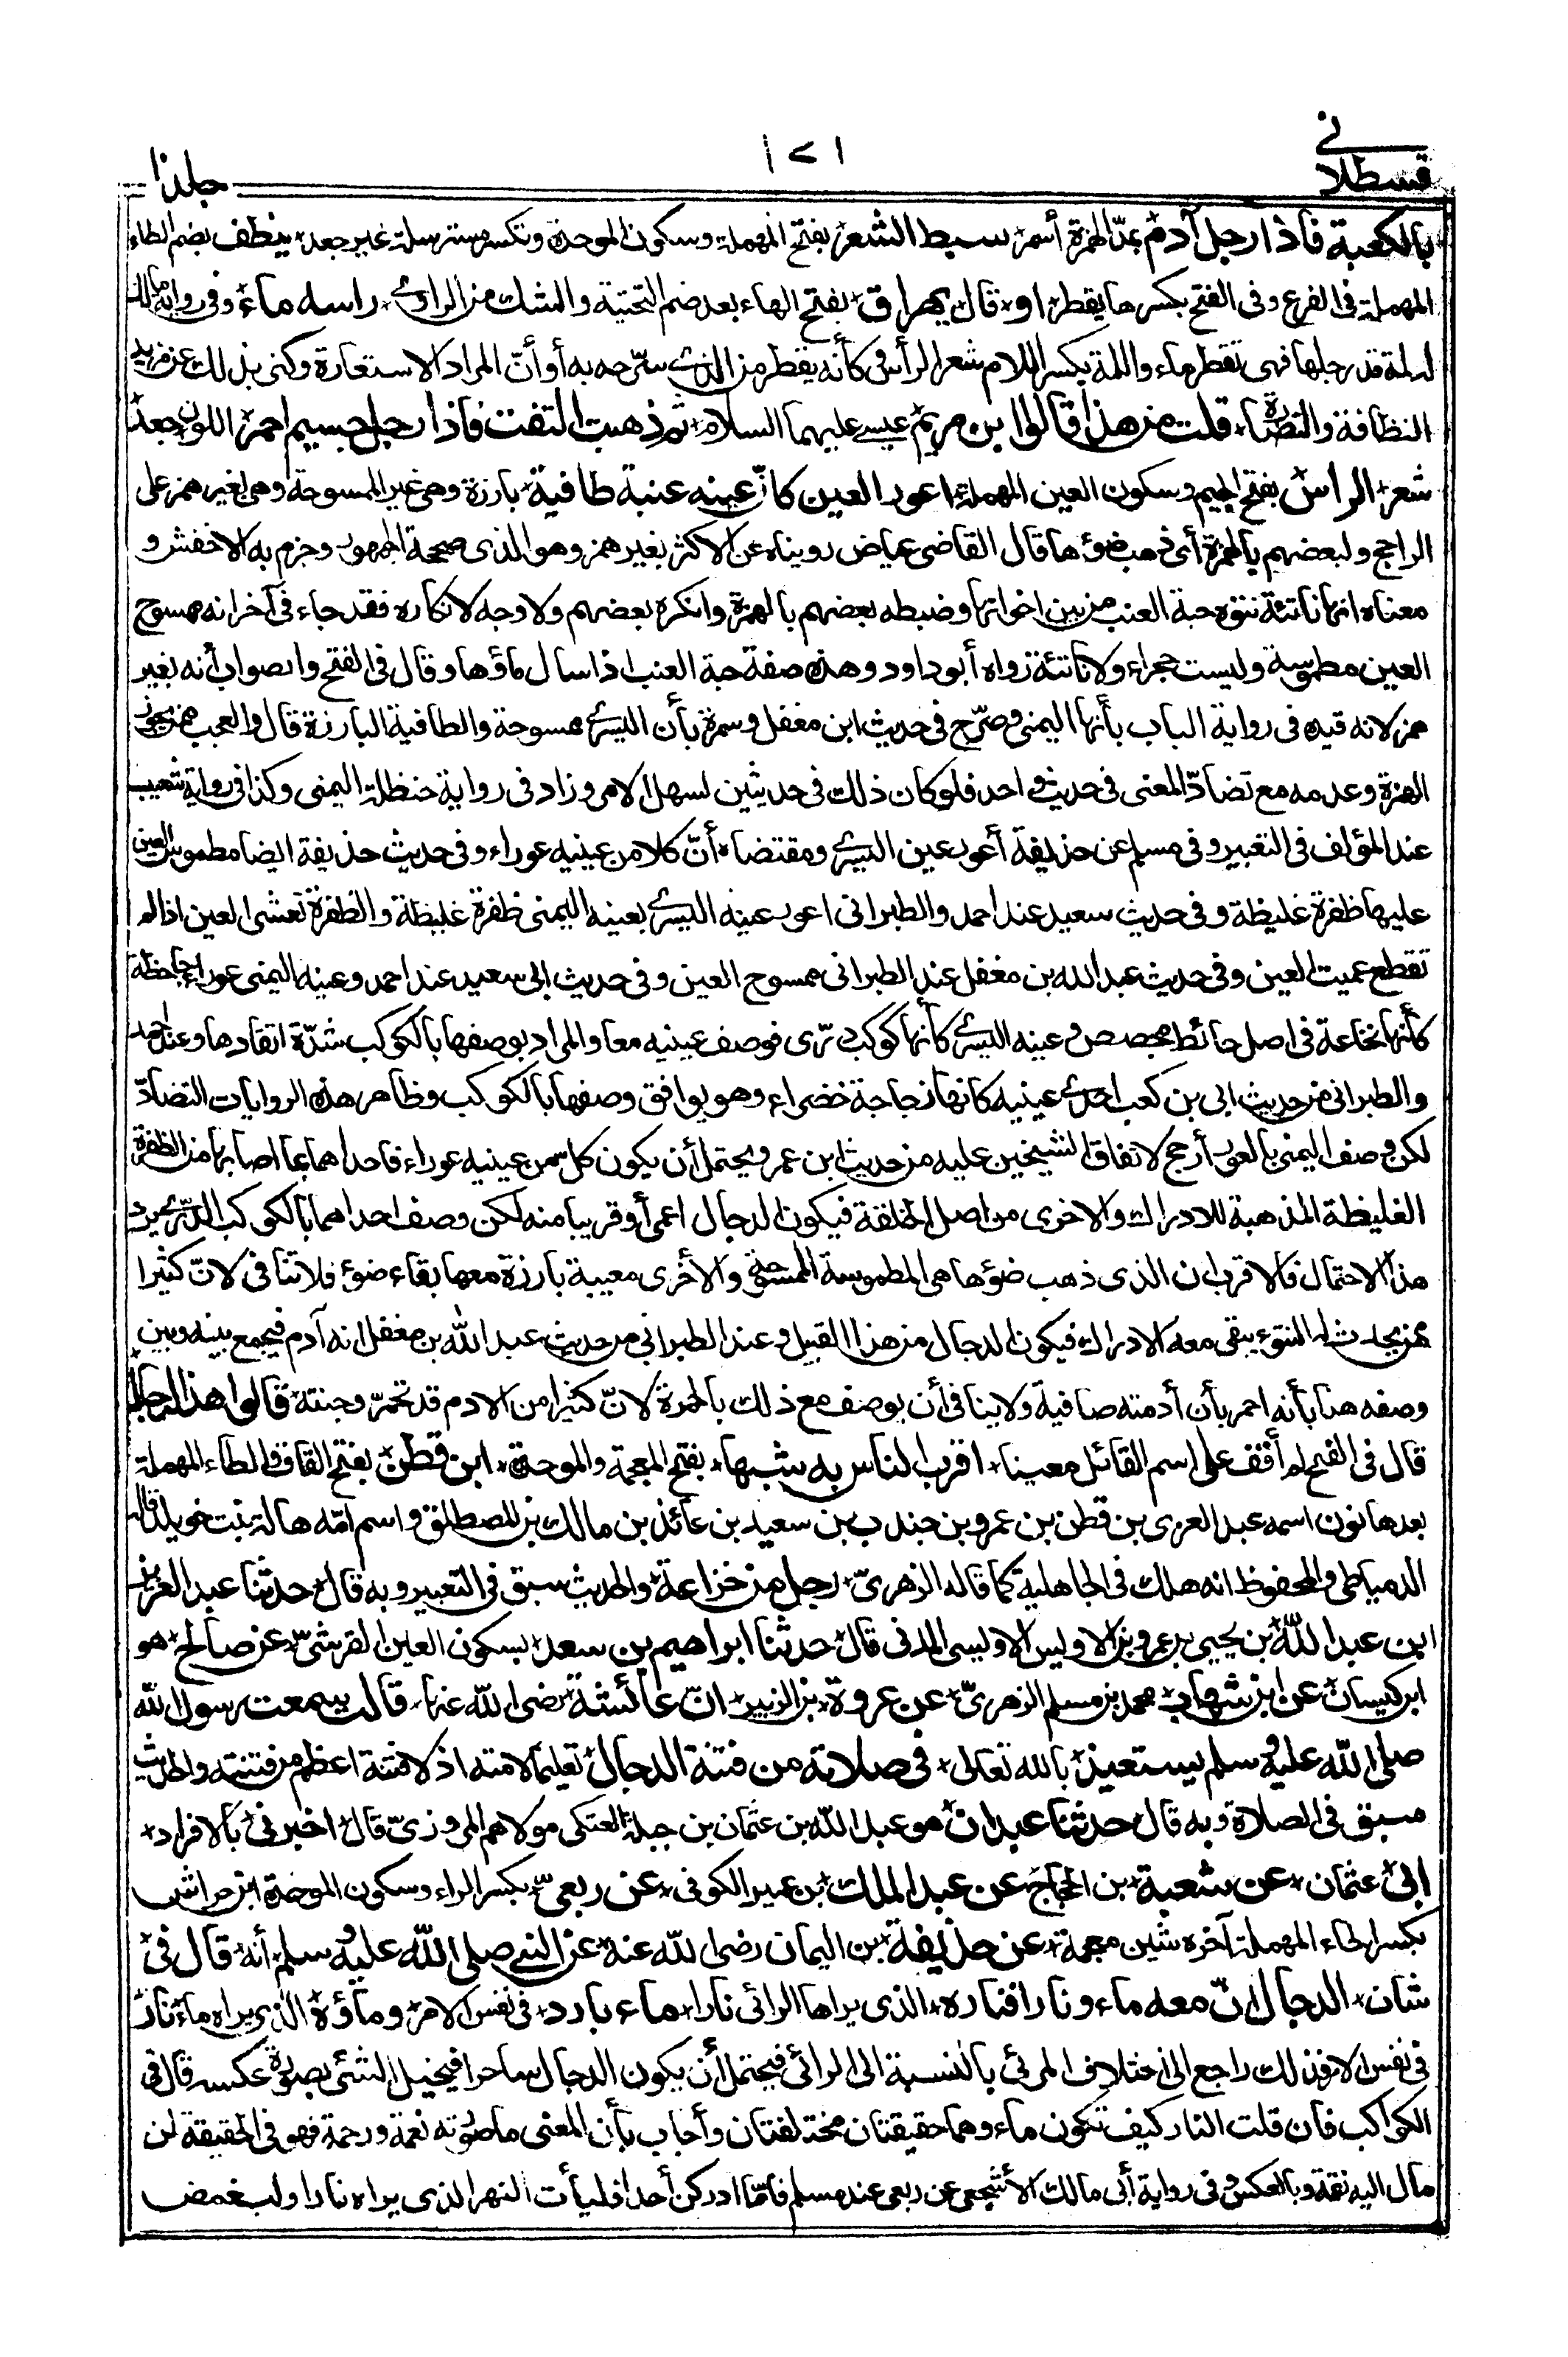 قسطلاني
١٧١
جلد١٠
بالكعبة فاذا رجل آدم بمدّ الهمزة أسمر سبط الشعر بفتح المهملة وسكون الموحدة وتكسر مسترسلة غير جعد ينطف بضم الطاء
المهملة فى الفرع وفى الفتح بكسرها يقطر او قال يهراق بفتح الهاء بعد ضم التحتية والشك من الراوى راسه ماء وفى رواية مالك
له لمة قد رجلها فهى تقطر ماء واللمة بكسر اللام شعر الرأس وكأنه يقطر من الذى سرّحه به أو أنّ المراد الاستعارة وكنى بذلك عن مزيد
النظافة والنضارة قلت من هذا قالوا ابن مريم عيسى عليهما السلام ثم ذهبت التفت فاذا رجل جسيم احمر اللون جعد
شعر الراس بفتح الجيم وسكون العين المهملة اعور العين كانّ عينه عنبة طافية بارزة وهى غير الممسوحة وهى بغير همز على
الراجح ولبعضهم بالهمزة أى ذهب ضوؤها قال القاضى عياض رويناه عن الاكثر بغير همز وهو الذى صححه الجمهور وجزم به الاخفش و
معناه انها ناتئة نتوء حبة العنب من بين اخواتها وضبطه بعضهم بالهمزة وانكره بعضهم ولا وجه لانكاره فقد جاء فى آخر انه ممسوح
العين مطموسة وليست جحراء ولا ناتئة رواه أبو داود وهذه صفة حبة العنب اذا سال ماؤها وقال فى الفتح والصواب أنه بغير
همز لانه قيده فى رواية الباب بأنها اليمنى وصرّح فى حديث ابن مغفل وسمرة بأن اليسرى ممسوحة والطافية البارزة قال والعجب ممن يجوز
الهمزة وعدمه مع تضادّ المعنى فى حديث واحد فلو كان ذلك فى حديثين لسهل الامر وزاد فى رواية حنظلة اليمنى وكذا فى رواية شعيب
عند المؤلف فى التعبير وفى مسلم عن حذيفة أعور عين اليسرى ومقتضاه أنّ كلا من عينيه عوراء وفى حديث حذيفة ايضا مطموس العين
عليها ظفرة غليظة وفى حديث سعيد عند احمد والطبرانى اعور عينه اليسرى بعينه اليمنى ظفرة غليظة والظفرة تغشى العين اذا لم
تقطع عميت العين وفى حديث عبد الله بن مغفل عند الطبرانى ممسوح العين وفى حديث ابى سعيد عند احمد وعينه اليمنى عوراء جاحظة
كأنها نخاعة فى اصل حائط مجصص وعينه اليسرى كأنها كوكب درّى فوصف عينيه معا والمراد بوصفها بالكوكب شدّة اتقادها وعند احمد
والطبرانى من حديث ابى بن كعب احدى عينيه كانها زجاجة خضراء وهو يوافق وصفها بالكوكب وظاهر هذه الروايات التضادّ
لكن وصف اليمنى بالعور أرجح لاتفاق الشيخين عليه من حديث ابن عمر ويحتمل أن يكون كل من عينيه عوراء فاحداهما بما اصابها من الظفرة
الغليظة المذهبة للادراك والاخرى من اصل الخلقة فيكون الدجال اعمى أو قريبا منه لكن وصف احداهما بالكوكب الدرّى يرد
هذا الاحتمال فالاقرب ان الذى ذهب ضوؤها هى المطموسة الممسوحة والأخرى معيبة بارزة معها بقاء ضوء فلا تنافى لانّ كثيرا
ممن يحدث له النتوء يبقى معه الادراك فيكون الدجال من هذا القبيل وعند الطبرانى من حديث عبد الله بن مغفل انه آدم فيجمع بينه وبين
وصفه هنا بأنه احمر بأن أدمته صافية ولا ينافى أن يوصف مع ذلك بالحمرة لانّ كثيرا من الادم قد تحمرّ وجنته قالوا هذا الدجال
قال فى الفتح لم أقف على اسم القائل معينا اقرب الناس به شبها بفتح المعجمة والموحدة ابن قطن بفتح القاف والطاء المهملة
بعدها نون اسمه عبد العزى بن قطن بن عمرو بن جندب بن سعيد بن عائذ بن مالك بن المصطلق واسم امّه هالة بنت خويلد قاله
الدمياطى والمحفوظ انه هلك فى الجاهلية كما قاله الزهرىّ رجل من خزاعة والحديث سبق فى التعبير وبه قال حدثنا عبد العزيز
ابن عبد الله بن يحيى بن عمرو بن الاويس الاويسى المدنى قال حدثنا ابراهيم بن سعد بسكون العين القرشىّ عن صالح هو
ابن كيسان عن ابن شهاب محمد بن مسلم الزهرىّ عن عروة بن الزبير انّ عائشة رضى الله عنها قالت سمعت رسول الله
صلى الله عليه وسلم يستعيذ بالله تعالى فى صلاته من فتنة الدجال تعليما لامته اذ لا فتنة اعظم من فتنته والحديث
سبق فى الصلاة وبه قال حدثنا عبدان هو عبد الله بن عثمان بن جبلة العتكى مولاهم المروزىّ قال اخبرنى بالافراد
ابى عثمان عن شعبة بن الحجاج عن عبد الملك بن عمير الكوفى عن ربعىّ بكسر الراء وسكون الموحدة ابن حراش
بكسر الحاء المهملة آخره شين معجمة عن حذيفة بن اليمان رضى الله عنه عن النبى صلى الله عليه وسلم أنه قال فى
شان الدجال انّ معه ماء ونارا فناره الذى يراها الرائى نارا ماء بارد فى نفس الامر وماؤه الذى يراه ماء نار
فى نفس الامر فذلك راجع الى اختلاف المرئى بالنسبة الى الرائى فيحتمل أن يكون الدجال ساحرا فيخيل الشئ بصورة عكسه قال فى
الكواكب فان قلت النار كيف تكون ماء وهما حقيقتان مختلفتان وأجاب بأن المعنى ما صورته نعمة ورحمة فهو فى الحقيقة لمن
مال اليه نقمة وبالعكس وفى رواية أبى مالك الأشجعى عن ربعى عند مسلم فامّا ادركن أحدا فليأت النهر الذى يراه نارا وليغمض